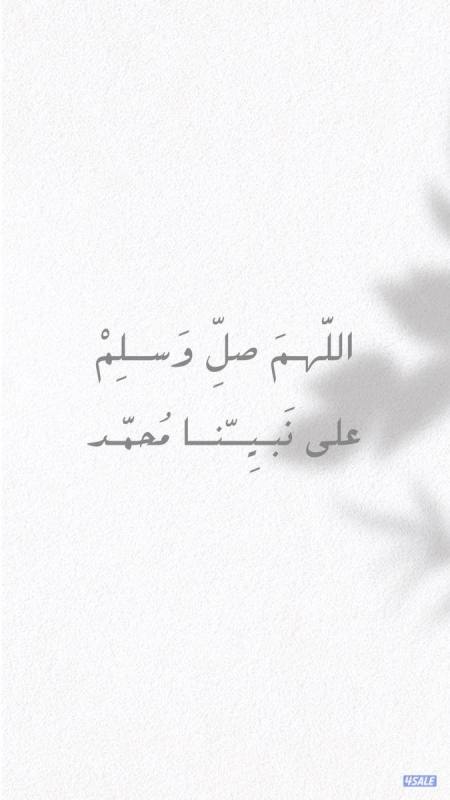 اللّهـمَ صلِّ وَسـلِمْ
على نَبـيِـّنـا مُحمّـد
4SALE